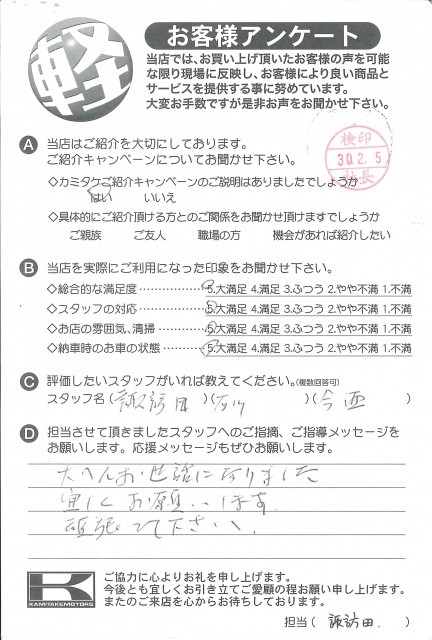 軽
お客様アンケート
当店では、お買い上げ頂いたお客様の声を可能
な限り現場に反映し、お客様により良い商品と
サービスを提供する事に努めています。
大変お手数ですが是非お声をお聞かせ下さい。
検印
30.2.5
社長
A 当店はご紹介を大切にしております。
ご紹介キャンペーンについてお聞かせ下さい。
◇カミタケご紹介キャンペーンのご説明はありましたでしょうか
はい いいえ
◇具体的にご紹介頂ける方とのご関係をお聞かせ頂けますでしょうか
ご親族 ご友人 職場の方 機会があれば紹介したい
B 当店を実際にご利用になった印象をお聞かせ下さい。
◇総合的な満足度…………5.大満足 4.満足 3.ふつう 2.やや不満 1.不満
◇スタッフの対応…………5.大満足 4.満足 3.ふつう 2.やや不満 1.不満
◇お店の雰囲気、清掃……5.大満足 4.満足 3.ふつう 2.やや不満 1.不満
◇納車時のお車の状態……5.大満足 4.満足 3.ふつう 2.やや不満 1.不満
C 評価したいスタッフがいれば教えてください。(複数回答可)
スタッフ名(諏訪田)( )(今西)
D 担当させて頂きましたスタッフへのご指摘、ご指導メッセージを
お願いします。応援メッセージもぜひお願いします。
大へんお世話になりました
宜しくお願いします
頑張って下さい。
K
KAMITAKEMOTORS
ご協力に心よりお礼を申し上げます。
今後とも宜しくお引き立てご愛顧の程お願い申し上げます。
またのご来店を心からお待ちしております。
担当(諏訪田.)